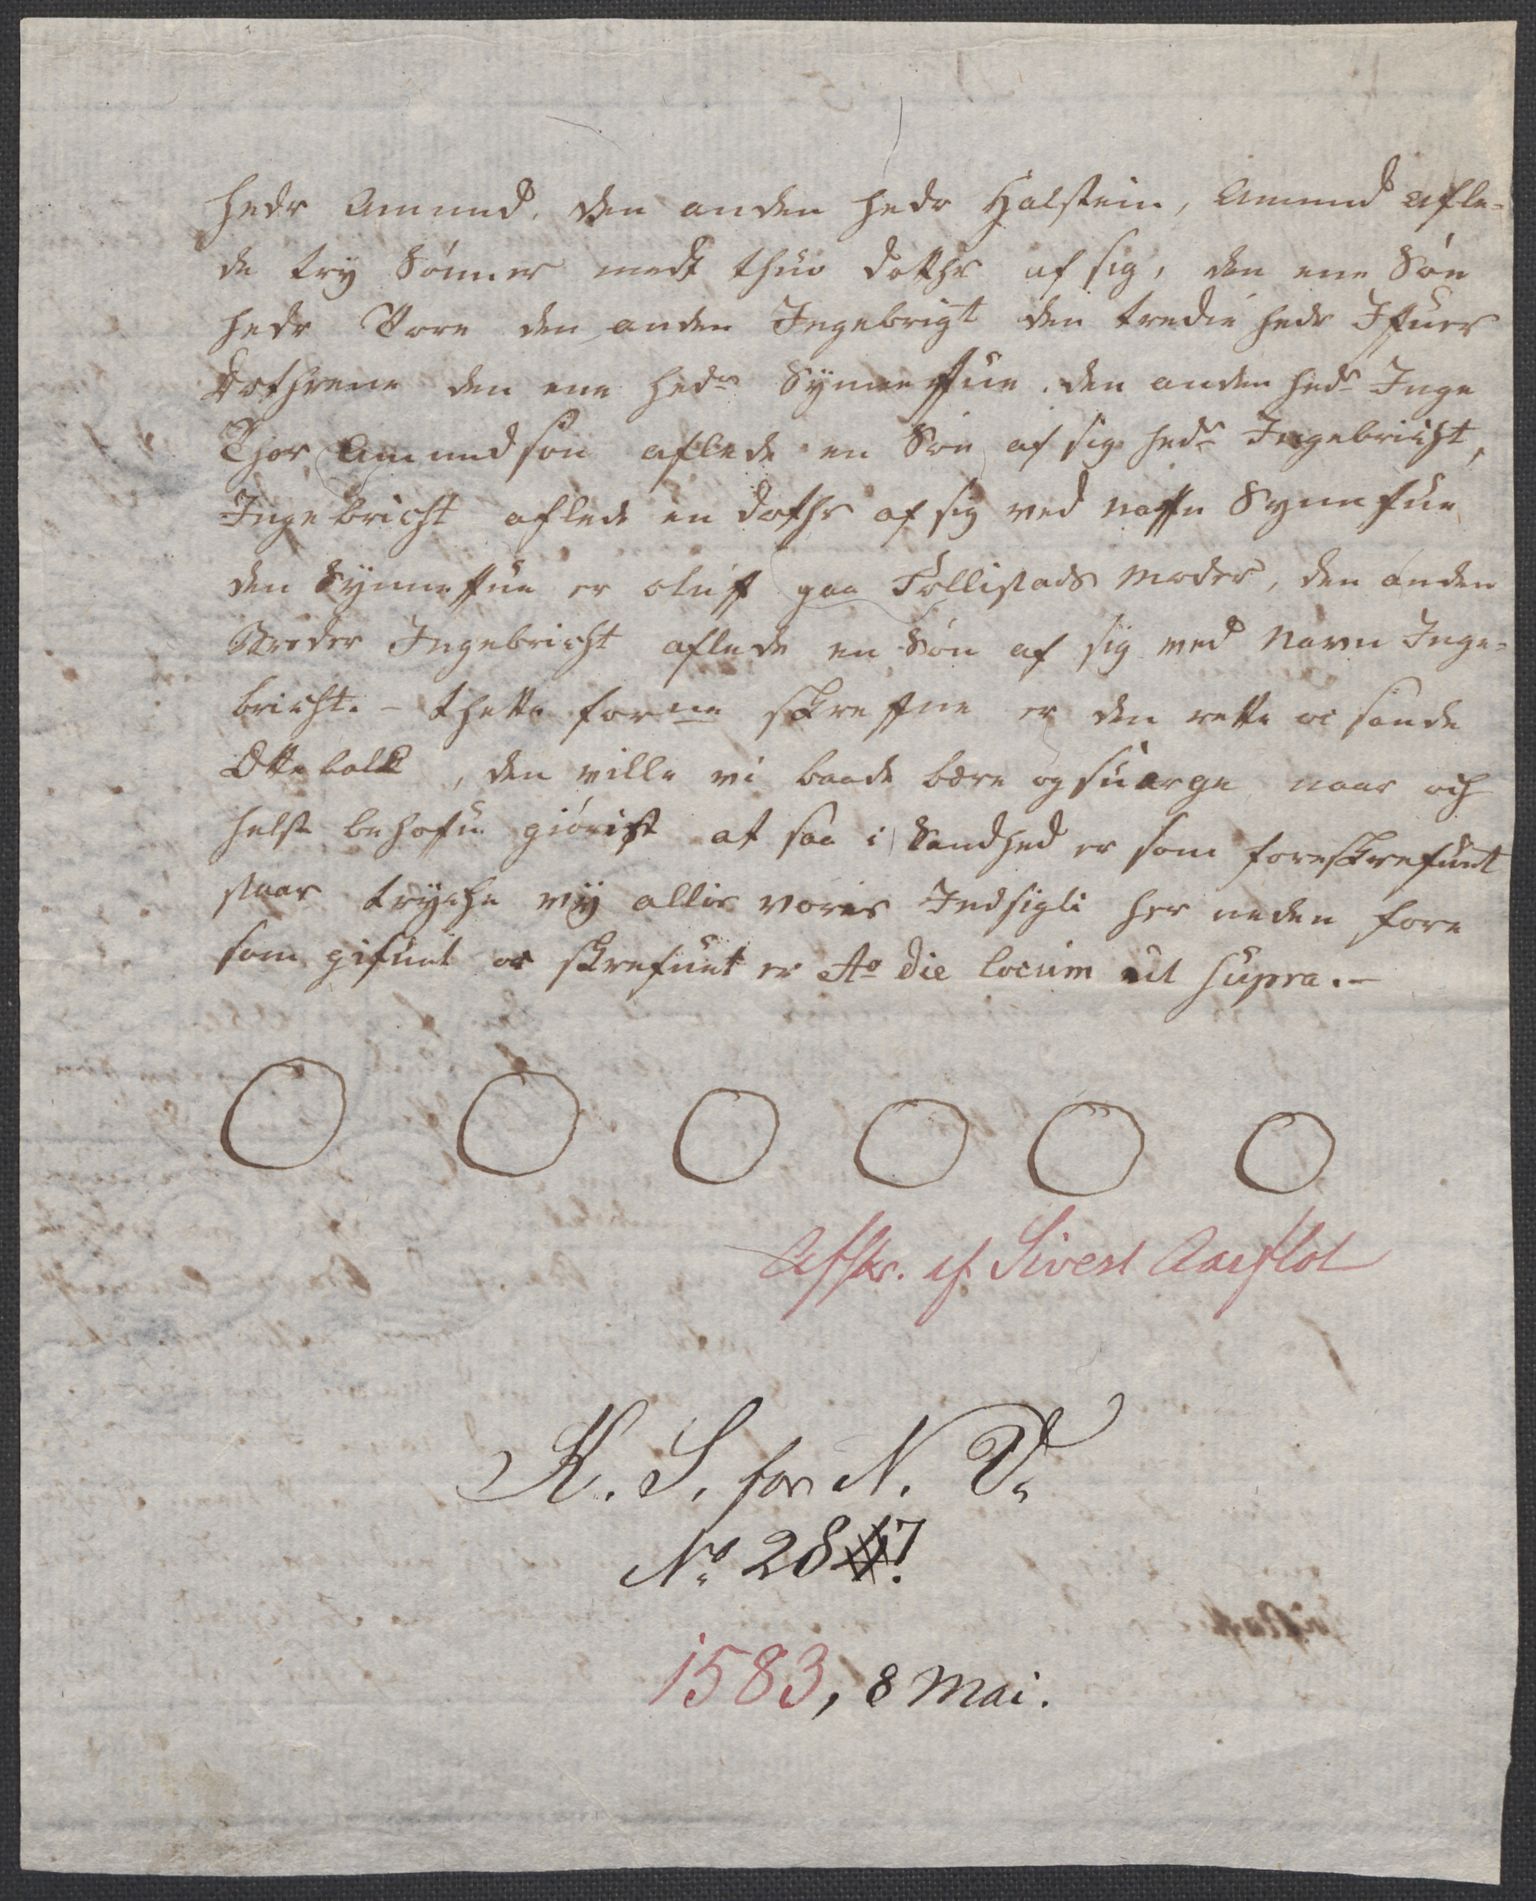 hedr Amund, den anden hedr Halstein, Amund afle-
de try Sønner medt thuo dothr af sig, den ene Søn
hedr Tore den anden Ingebrigt den tredie hedr Ifuer
dothrene den ene hedr Synneffue, den anden hedr Inge
Thor Amundsøn aflede en Søn af sig hedr Ingebricht,
Ingebricht aflede en dothr af sig ved naffn Synnefue
den Synneffue er oluff paa Follistads Moder, den anden
Broder Ingebricht aflede en Søn af sig ved Navn Inge-
bricht. – thette forne skreffne er den rette oc sande
Ottebolk, den ville vi baade bære og suærge naar och
helst behofu giørist at saa i Sandhed er som foreskrefuet
staar trÿche vÿ allis voris Indsigli her neden fore
som gifuit oc skrefuet er Ao die locum ut supra. –
Afskr. af Sivert Aarflot
K. S. for N. V.
No 287!
1583, 8 Mai.